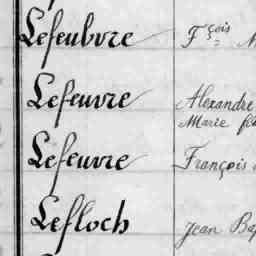 Lefeubvre Fçois
Lefeuvre Alexandre
Marie
Lefeuvre François
Lefloch Jean